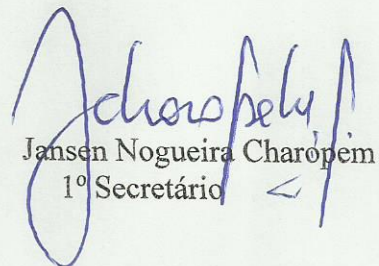 Jansen Nogueira Charópem
1º Secretário